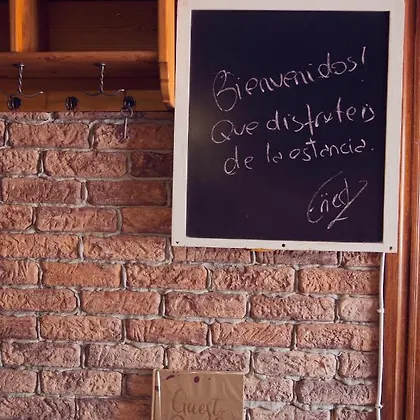 Bienvenidos!
Que disfruteis
de la estancia.
Guest